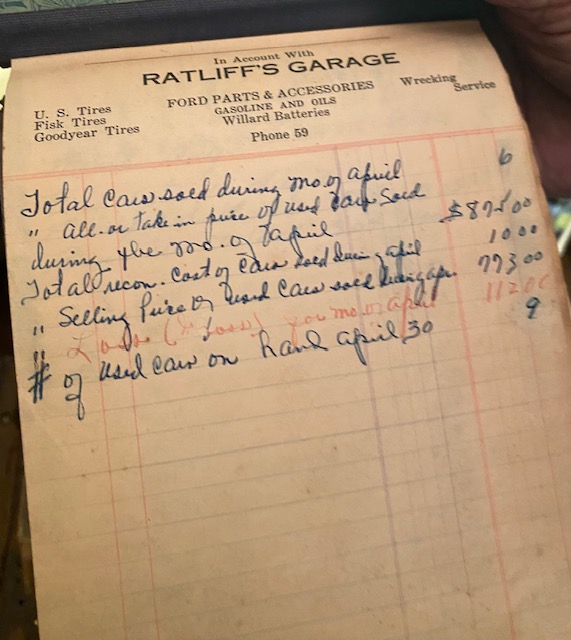 In Account With
RATLIFF'S GARAGE
FORD PARTS & ACCESSORIES
GASOLINE AND OILS
Willard Batteries
Phone 59
U. S. Tires
Fisk Tires
Goodyear Tires
Wrecking
Service
Total Cars sold during mo. of April 6
" all. or take in price of used cars Sold
during the mo. of April $875 00
Total recon. Cost of Cars sold during April 10 00
" Selling Price of used Cars sold during apr. 773 00
" Loss (% loss) for mo. of april 112 00
# of used cars on hand april 30 9